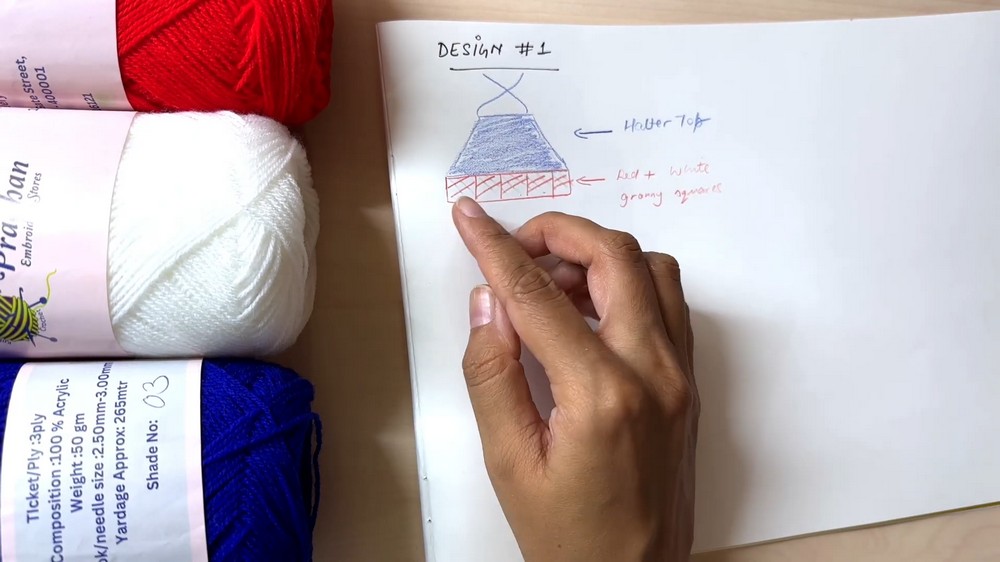 DESIGN #1
Halter Top
Red + White
granny squares
Street,
400001
Pra han
Embroid
Stores
Ticket/Ply :3ply
Composition :100 % Acrylic
Weight :50 gm
ok/needle size :2.50mm-3.00mm
Yardage Approx: 265mtr
Shade No: 03